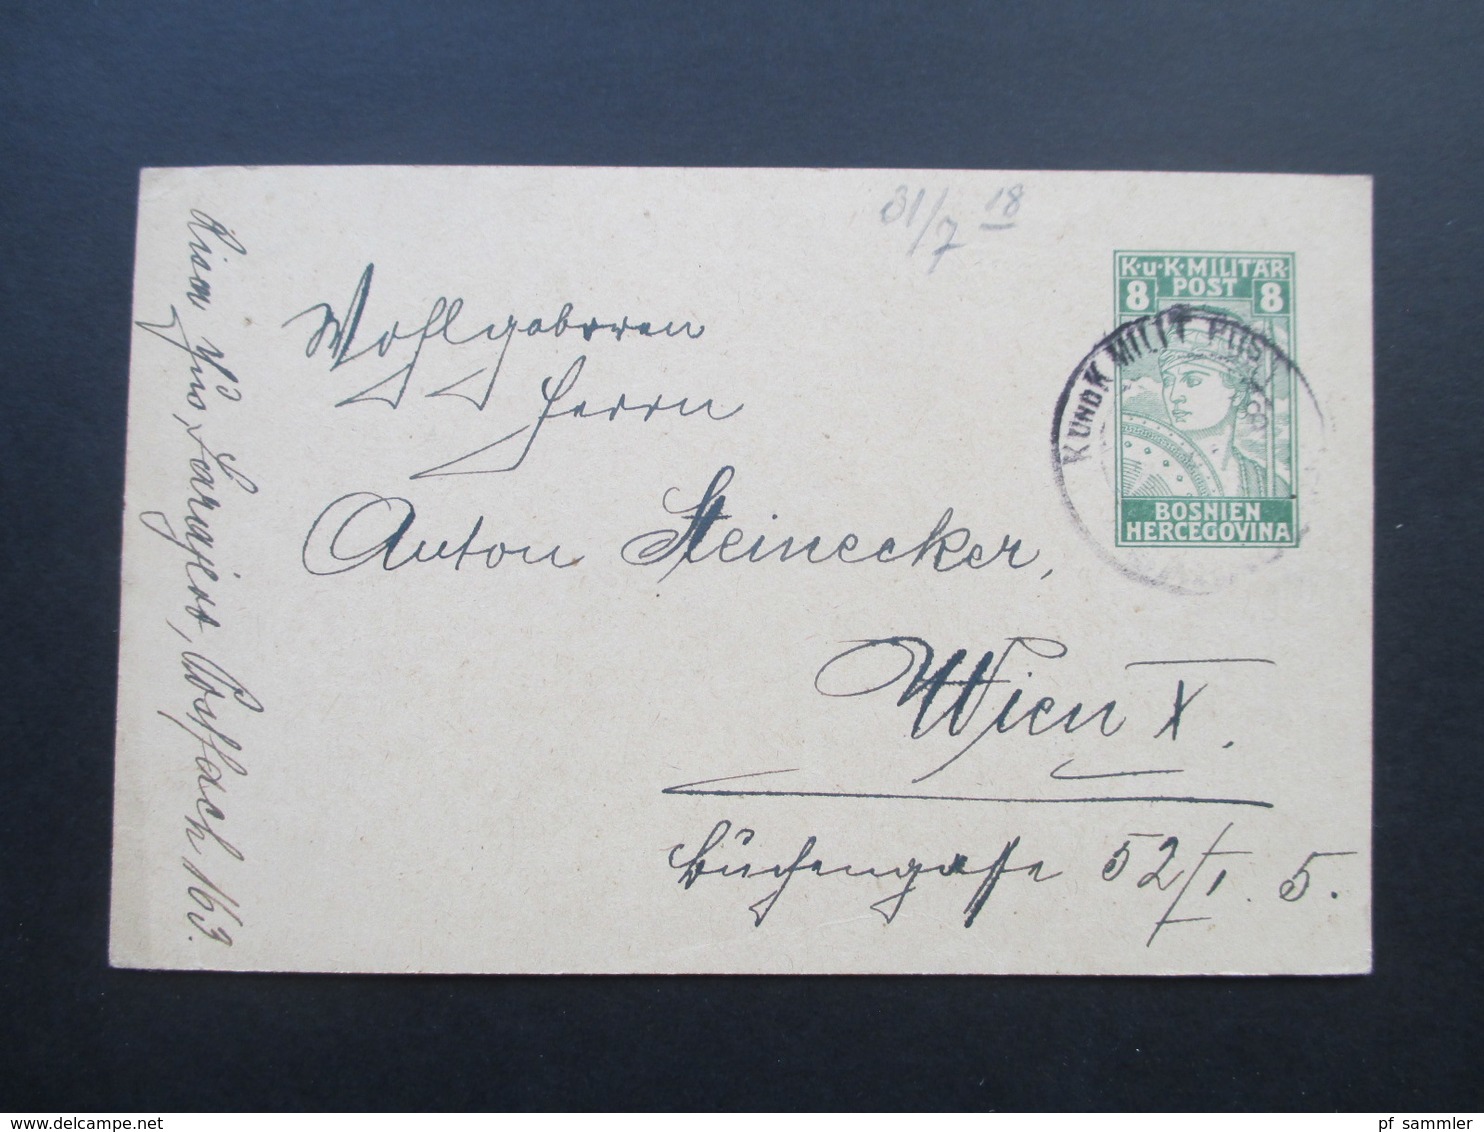 31/7 18
K.u.K.MILITÄR
POST
8 8
K UND K MILIT POST
BOSNIEN
HERCEGOVINA
Wohlgeboren
Herrn
Anton Steinecker,
Wien X.
Büchengasse 52/I. 5.
Sarajevo, Postfach 163.
delcampe.net
pf_sammler